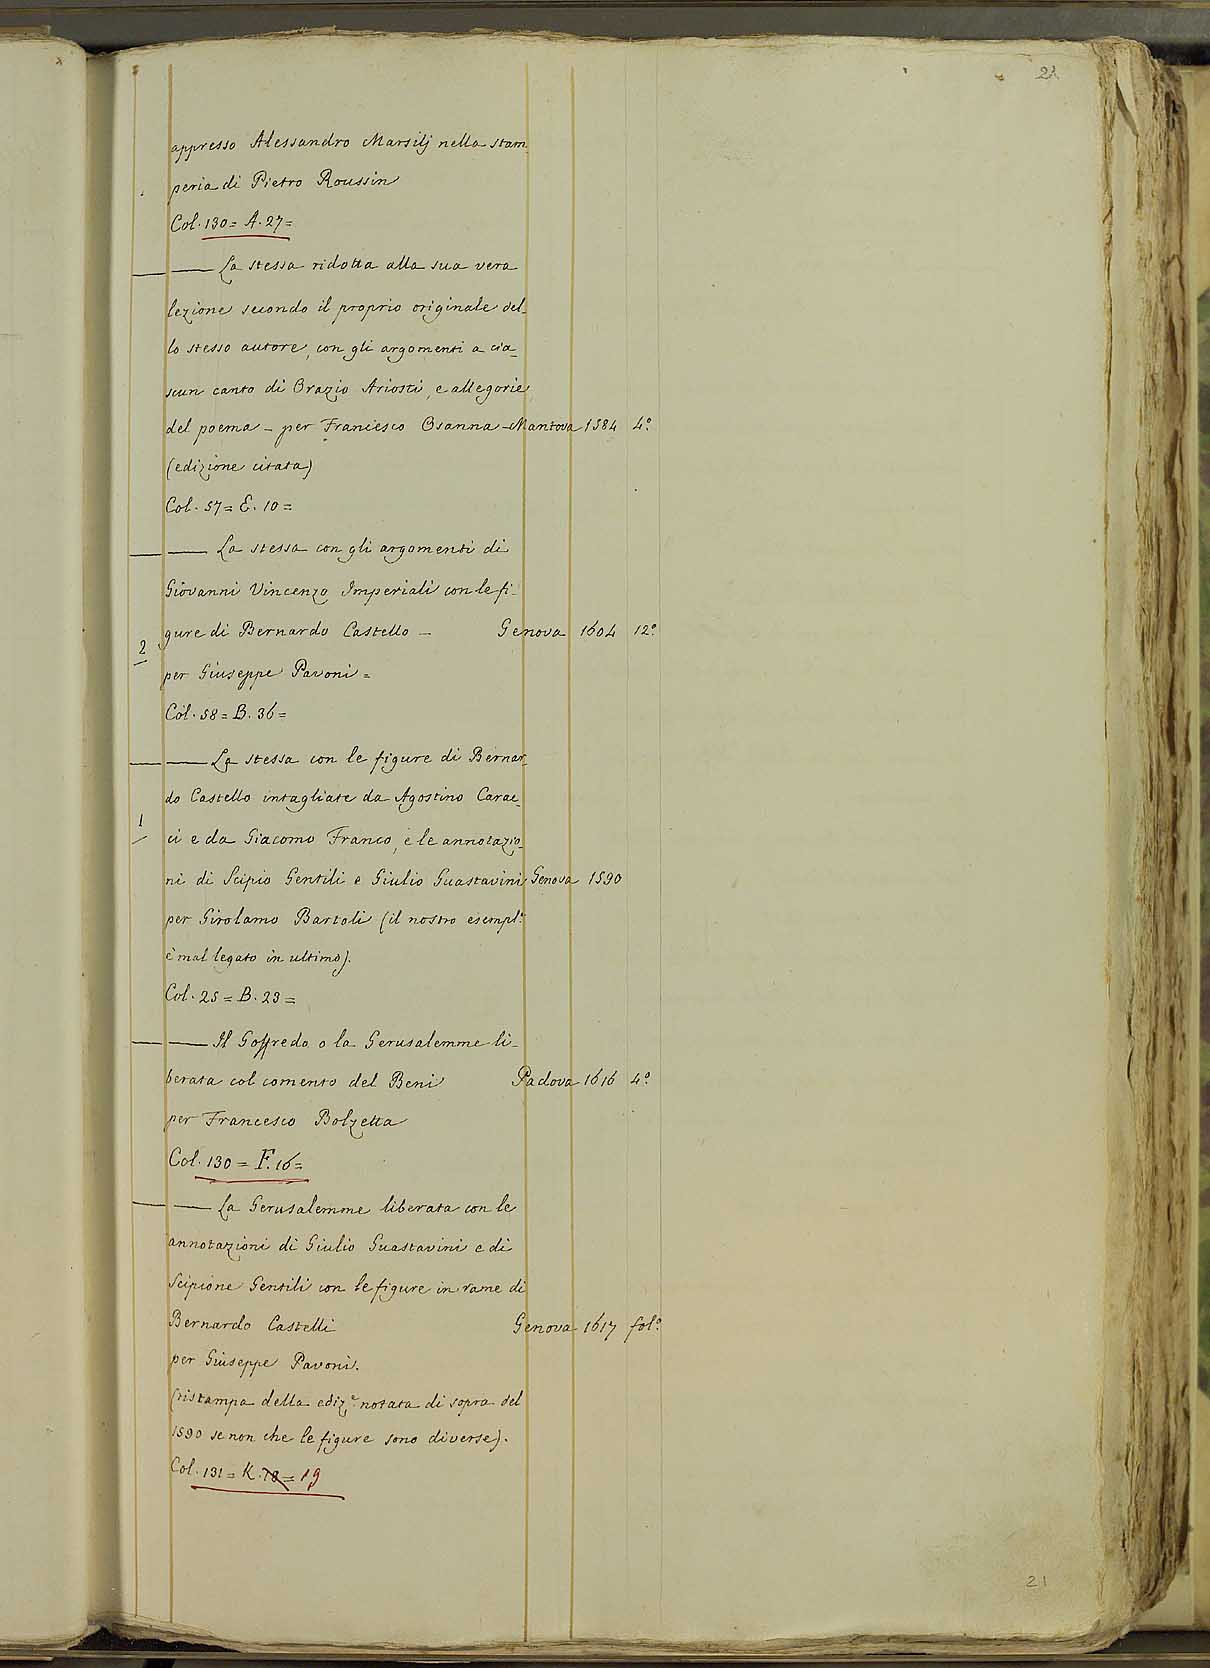 21
appresso Alessandro Marsilj nella stam_
peria di Pietro Roussin
Col. 130 = A. 27 =
La stessa ridotta alla sua vera
lezione secondo il proprio originale del_
lo stesso autore, con gli argomenti a cia_
scun canto di Orazio Ariosti, e allegorie
del poema _ per Francesco Osanna _ Mantova 1584 4º
(edizione citata)
Col. 57 = E. 10 =
La stessa con gli argomenti di
Giovanni Vincenzo Imperiali con le fi_
2 gure di Bernardo Castello _ Genova 1604 12º
per Giuseppe Pavoni =
Col. 58 = B. 36 =
La stessa con le figure di Bernar_
do Castello intagliate da Agostino Carac_
1 ci e da Giacomo Franco, e le annotazio_
ni di Scipio Gentili e Giulio Guastavini Genova 1590
per Girolamo Bartoli (il nostro esempl.e
è mal legato in ultimo).
Col. 25 = B. 23 =
Il Goffredo o la Gerusalemme li_
berata col comento del Beni Padova 1616 4º
per Francesco Bolzetta
Col. 130 = F. 16 =
La Gerusalemme liberata con le
annotazioni di Giulio Guastavini e di
Scipione Gentili con le figure in rame di
Bernardo Castelli Genova 1617 folº
per Giuseppe Pavoni.
(ristampa della ediz.e notata di sopra del
1590 se non che le figure sono diverse).
Col. 131 = K. 18 = 19
21